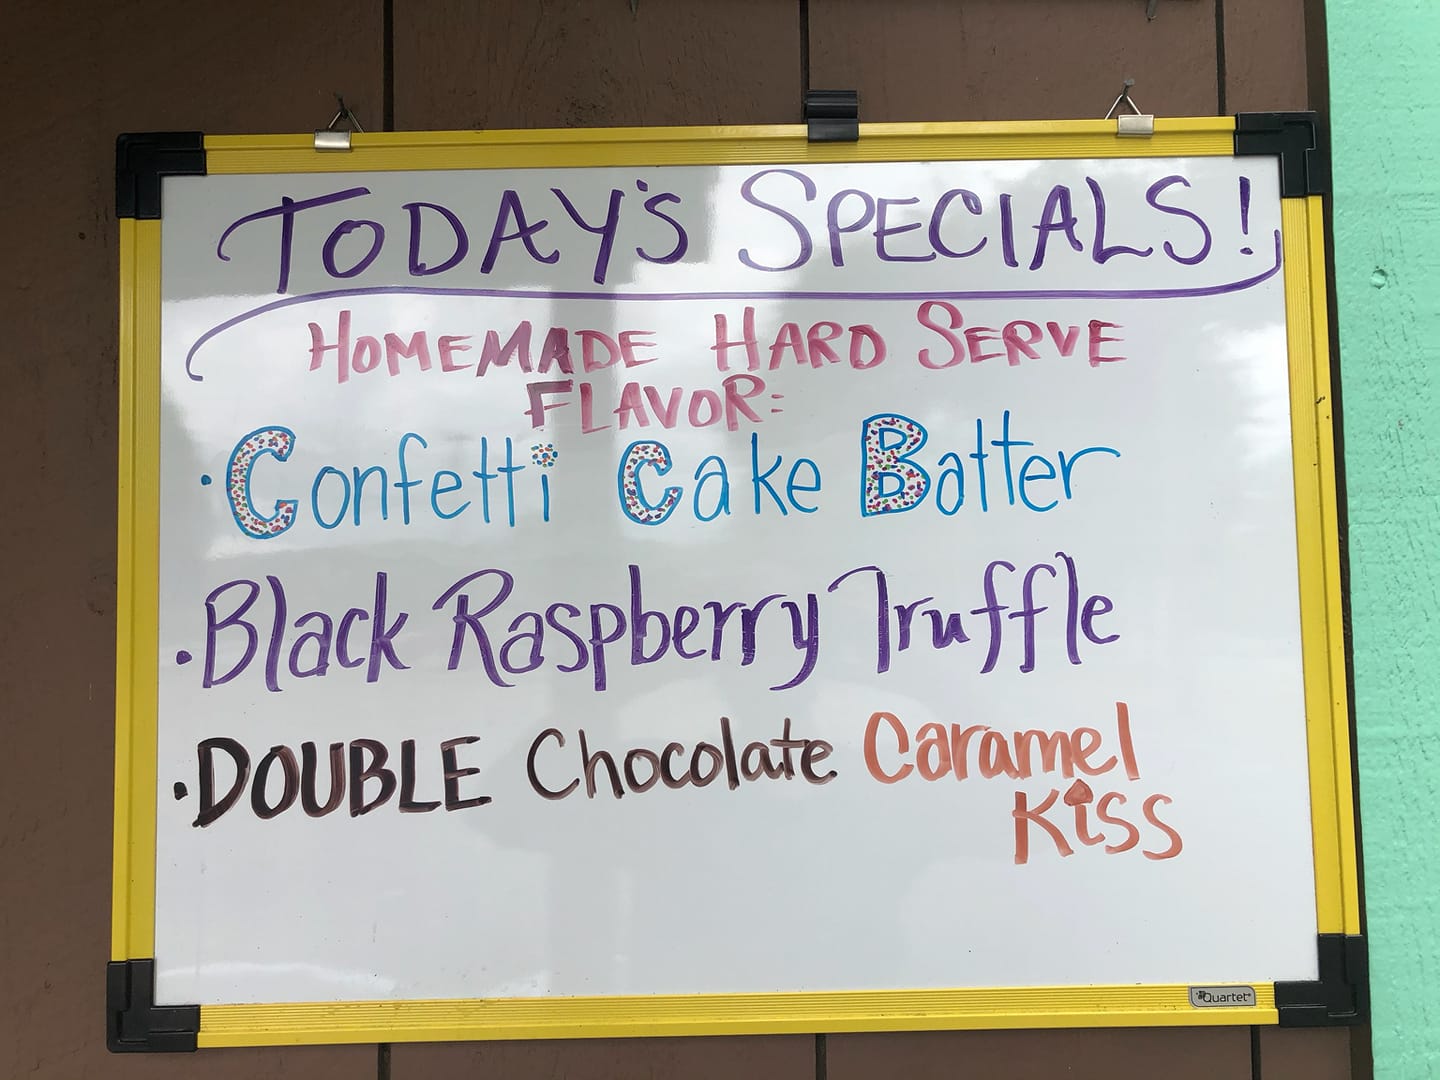 TODAY'S SPECIALS!
HOMEMADE HARD SERVE
FLAVOR:
· Confetti Cake Batter
· Black Raspberry Truffle
· DOUBLE Chocolate Caramel
Kiss
Quartet